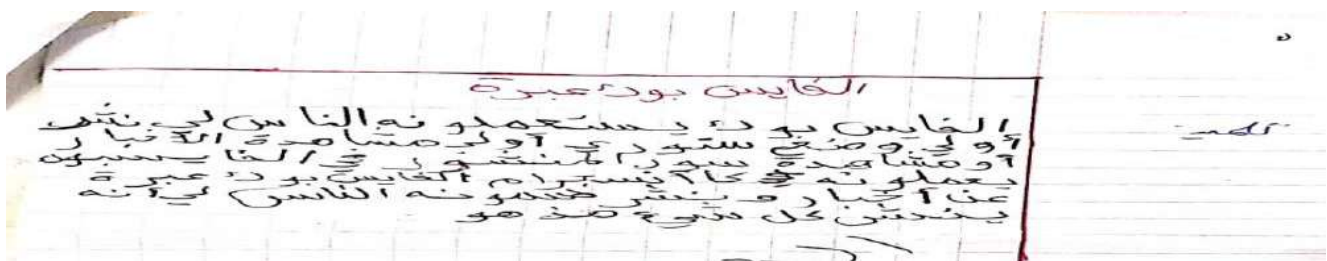 الفايس بوك عبرة
الفايس بوك يستعملونه الناس لي نشر
أولي وضع ستوري أولي مشاهدة الأخبار
أو مشاهدة سورا منشور في الفايسبوك
يعملونه كا أنسجرام الفايس بوك عبرة
عن أخبار و ينشر الناس لي أنه
ينشر كل شيء هذ هو